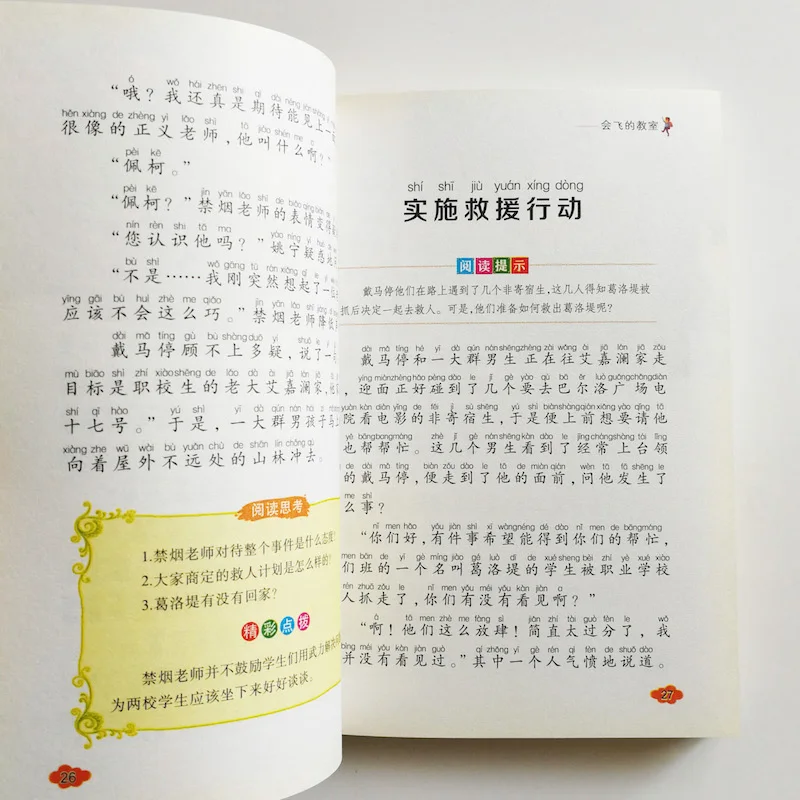 ó wǒ hái zhēn shì qī dài néng jiàn shàng
“哦？我还真是期待能见上一
hěn xiàng de zhèng yì lǎo shī tā jiào shén me
很像的正义老师，他叫什么啊？”
pèi kē
“佩柯。”
pèi kē jìn yān lǎo shī de biǎo qíng biàn de
“佩柯？”禁烟老师的表情变得
nín rèn shi tā ma yáo níng yí huò de
“您认识他吗？”姚宁疑惑地
bù shì wǒ gāng tū rán xiǎng qǐ le
“不是……我刚突然想起了一
yīng gāi bú huì zhè me qiǎo jìn yān lǎo shī
应该不会这么巧。”禁烟老师降低
dài mǎ tíng gù bù shàng duō yí shuō le
戴马停顾不上多疑，说了一
mù biāo shì zhí xiào shēng de lǎo dà ài jiā lán jiā
目标是职校生的老大艾嘉澜家，他
shí qī hào yú shì yí dà qún nán hái zi
十七号。”于是，一大群男孩子马
xiàng zhe wū wài bù yuǎn chù de shān lín chōng qù
向着屋外不远处的山林冲去。
阅读思考
1.禁烟老师对待整个事件是什么态度？
2.大家商定的救人计划是怎么样的？
3.葛洛堤有没有回家？
精彩点拨
禁烟老师并不鼓励学生们用武力解决
为两校学生应该坐下来好好谈谈。
26
会飞的教室
shí shī jiù yuán xíng dòng
实施救援行动
阅读提示
戴马停他们在路上遇到了几个非寄宿生，这几人得知葛洛堤被
抓后决定一起去救人。可是，他们准备如何救出葛洛堤呢？
dài mǎ tíng hé yí dà qún nán shēng zhèng zài wǎng ài jiā lán jiā zǒu
戴马停和一大群男生正在往艾嘉澜家走
yíng miàn zhèng hǎo pèng dào le jǐ gè yào qù bā ěr luò guǎng chǎng diàn
，迎面正好碰到了几个要去巴尔洛广场电
yuàn kàn diàn yǐng de fēi jì sù shēng yú shì biàn shàng qián xiǎng yào qǐng tā
院看电影的非寄宿生，于是便上前想要请他
yě bāng bang máng zhè jǐ gè nán shēng kàn dào le jīng cháng shàng tái lǐng
也帮帮忙。这几个男生看到了经常上台领
de dài mǎ tíng biàn zǒu dào le tā de miàn qián wèn tā fā shēng le
的戴马停，便走到了他的面前，问他发生了
me shì
么事？
nǐ men hǎo yǒu jiàn shì xī wàng néng dé dào nǐ men de bāng máng
“你们好，有件事希望能得到你们的帮忙，
men bān de yí gè míng jiào gě luò dī de xué sheng bèi zhí yè xué xiào
们班的一个名叫葛洛堤的学生被职业学校
rén zhuā zǒu le nǐ men yǒu méi yǒu kàn jiàn a
人抓走了，你们有没有看见啊？”
ā tā men zhè me fàng sì jiǎn zhí tài guò fèn le wǒ
“啊！他们这么放肆！简直太过分了，我
bìng méi yǒu kàn jiàn guò qí zhōng yí gè rén qì fèn de shuō dào
并没有看见过。”其中一个人气愤地说道。
27